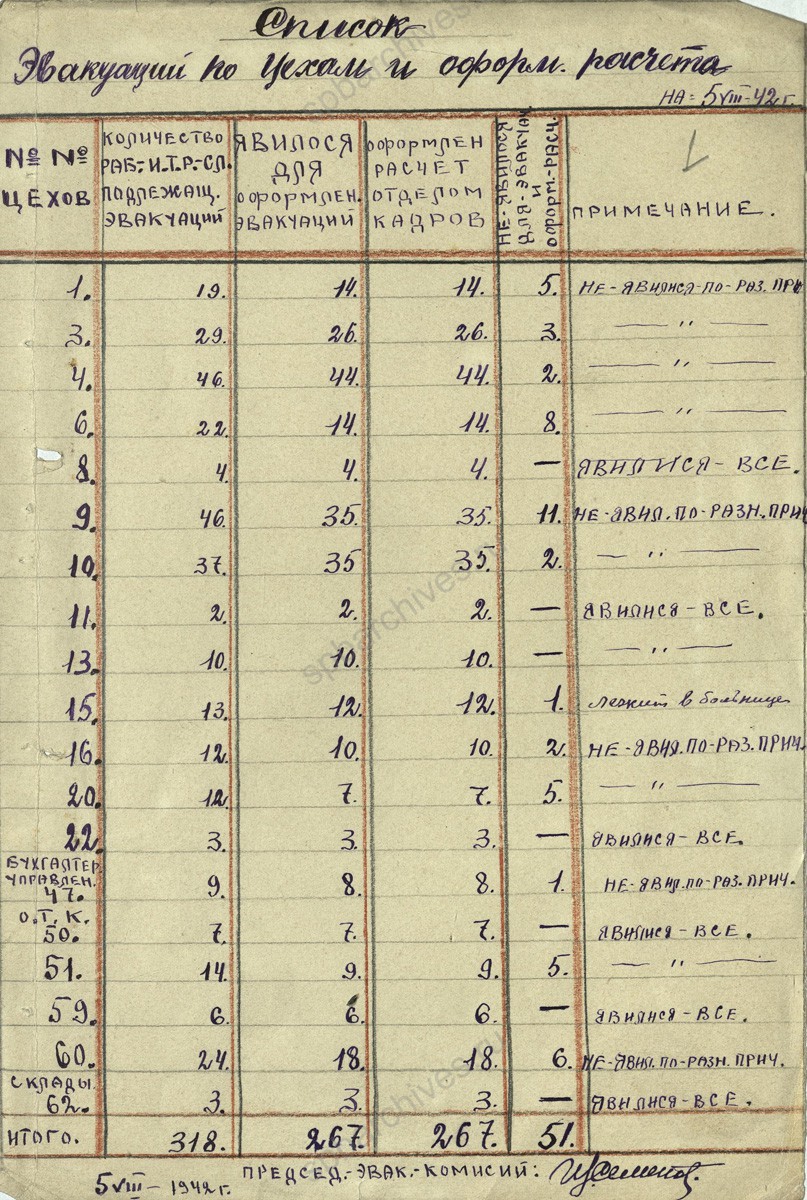 Список
Эвакуаций по Цехам и оформ. расчета
НА = 5 VIII - 42 г.
№ № ЦЕХОВ
КОЛИЧЕСТВО РАБ,- И.Т.Р.-СЛ. ПОДЛЕЖАЩ. ЭВАКУАЦИЙ
ЯВИЛОСЯ ДЛЯ ОФОРМЛЕН. ЭВАКУАЦИЙ
ОФОРМЛЕН РАСЧЕТ ОТДЕЛОМ КАДРОВ
НЕ-ЯВИЛОСЯ ДЛЯ-ЭВАКУАЦ И ОФОРМ.-РАСЧ.
ПРИМЕЧАНИЕ.
1. 19. 14. 14. 5. НЕ-ЯВИЛИСЯ-ПО-РАЗ. ПРИ
3. 29. 26. 26. 3. — " —
4. 46. 44. 44. 2. — " —
6. 22. 14. 14. 8. — " —
8. 4. 4. 4. — ЯВИЛИСЯ-ВСЕ.
9. 46. 35. 35. 11. НЕ-ЯВИЛ.ПО-РАЗН.ПРИЧ
10. 37. 35 35. 2. — " —
11. 2. 2. 2. — ЯВИЛИСЯ-ВСЕ.
13. 10. 10. 10. — — " —
15. 13. 12. 12. 1. лежит в больнице
16. 12. 10. 10. 2. НЕ-ЯВИЛ.ПО-РАЗ.ПРИЧ.
20. 12. 7. 7. 5. — " —
22. 3. 3. 3. — ЯВИЛИСЯ-ВСЕ.
БУХГАЛТЕР. УПРАВЛЕН.
47. 9. 8. 8. 1. НЕ-ЯВИЛ.ПО-РАЗ.ПРИЧ.
О.Т.К.
50. 7. 7. 7. — ЯВИЛИСЯ-ВСЕ.
51. 14. 9. 9. 5. — " —
59. 6. 6. 6. — ЯВИЛИСЯ-ВСЕ.
60. 24. 18. 18. 6. НЕ-ЯВИЛ.ПО-РАЗН.ПРИЧ.
СКЛАДЫ.
62. 3. 3. 3. — ЯВИЛИСЯ-ВСЕ.
ИТОГО. 318. 267. 267. 51.
5 VIII - 1942 г. ПРЕДСЕД.-ЭВАК.-КОМИСИЙ:
spbarchives.ru
spbarchives.ru
spbarchives.ru